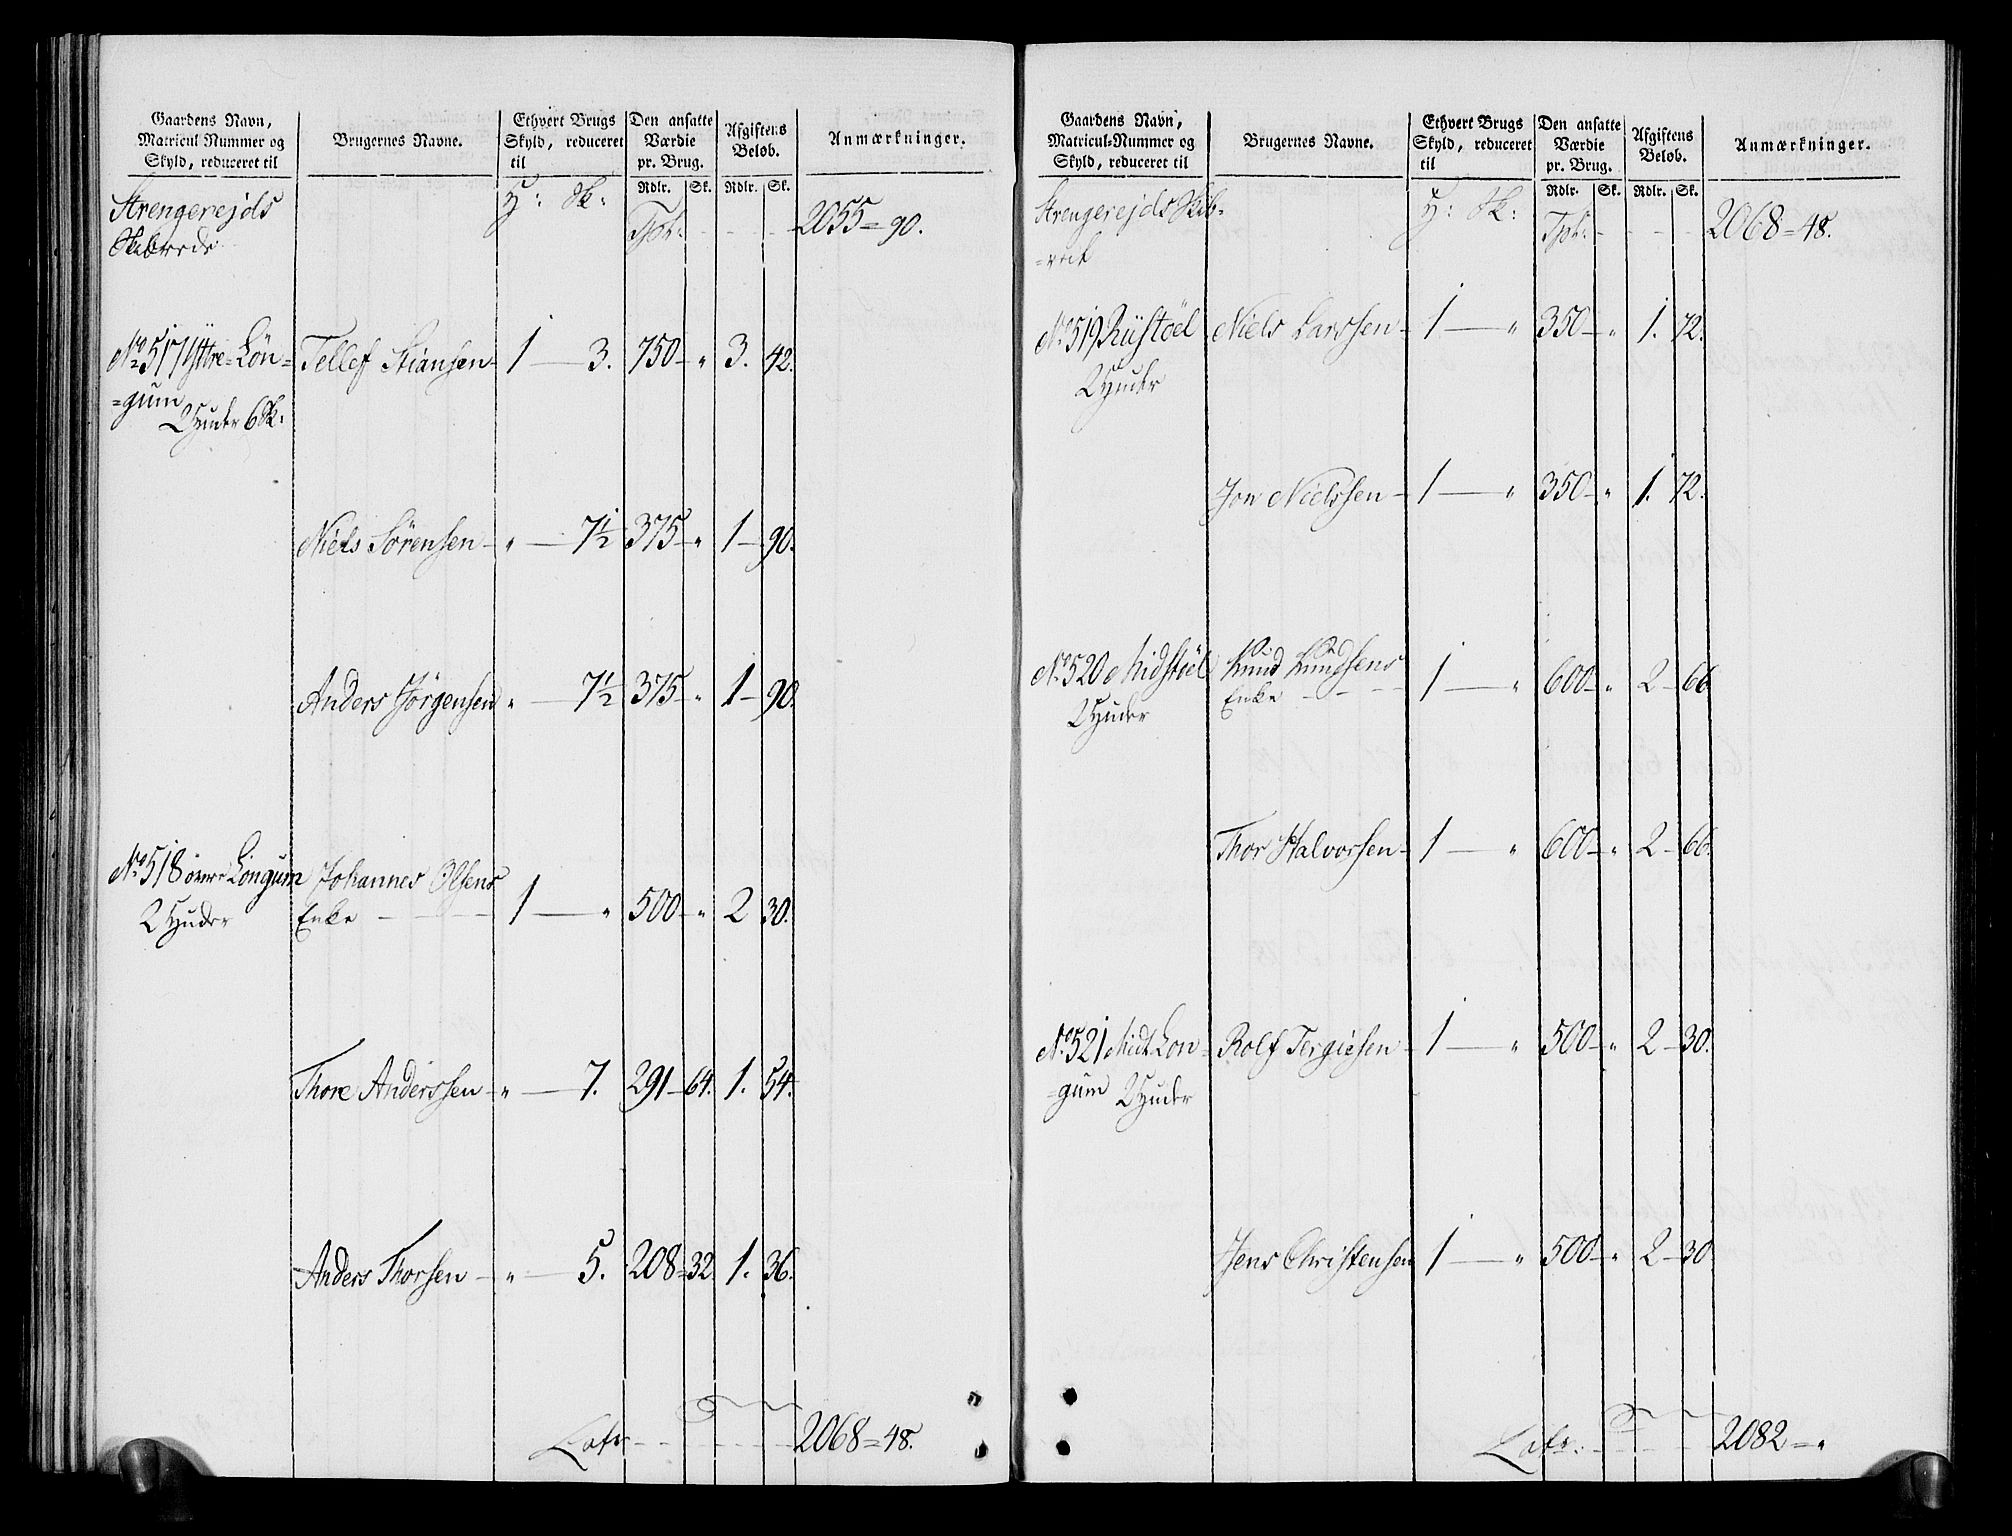 Gaardens Navn,
Matricul Nummer og
Skyld, reduceret til
Brugernes Navne.
Ethvert Brugs
Skyld, reduceret
til
Den ansatte
Værdie
pr. Brug.
Afgiftens
Beløb.
Anmærkninger.
Rdlr. Sk. Rdlr. Sk.
Strengerejds H: Sk:
Skibrede Tpt: 2055=90.
No 517 Yttre-Lön= Tellef Stiansen 1 — 3. 750 „ 3. 42.
=gum
2 Huder 6 Sk:
Niels Sörensen „ — 7½ 375 „ 1 — 90.
Anders Jörgensen „ — 7½ 375 „ 1 — 90.
No 518 övere Longum Johannes Olsens
2 Huder Enke 1 — „ 500 „ 2 30.
Thore Anderssen „ — 7. 291 64. 1. 54.
Anders Thorsen „ — 5. 208 32 1. 36.
Latr 2068=48.
Gaardens Navn,
Matricul-Nummer og
Skyld, reduceret til
Brugernes Navne.
Ethvert Brugs
Skyld, reduceret
til
Den ansatte
Værdie
pr. Brug.
Afgiftens
Beløb.
Anmærkninger.
Rdlr. Sk. Rdlr. Sk.
Strengerejds Skib= H: Sk:
=rede Tpt: 2068=48.
No 519 Rüstöel Niels Larssen 1 — „ 350 „ 1. 72.
2 Huder
Jon Nielssen 1 — „ 350 „ 1. 72.
No 520 Midstöel Knud Knudsens
2 Huder Enke 1 — „ 600 „ 2 66
Thor Halvorsen 1 — „ 600 „ 2 66.
No 521 Midt Lon= Rolf Tergiesen 1 — „ 500 „ 2 30.
=gum 2 Huder
Jens Christensen 1 — „ 500 „ 2 30
Latr: 2082=„